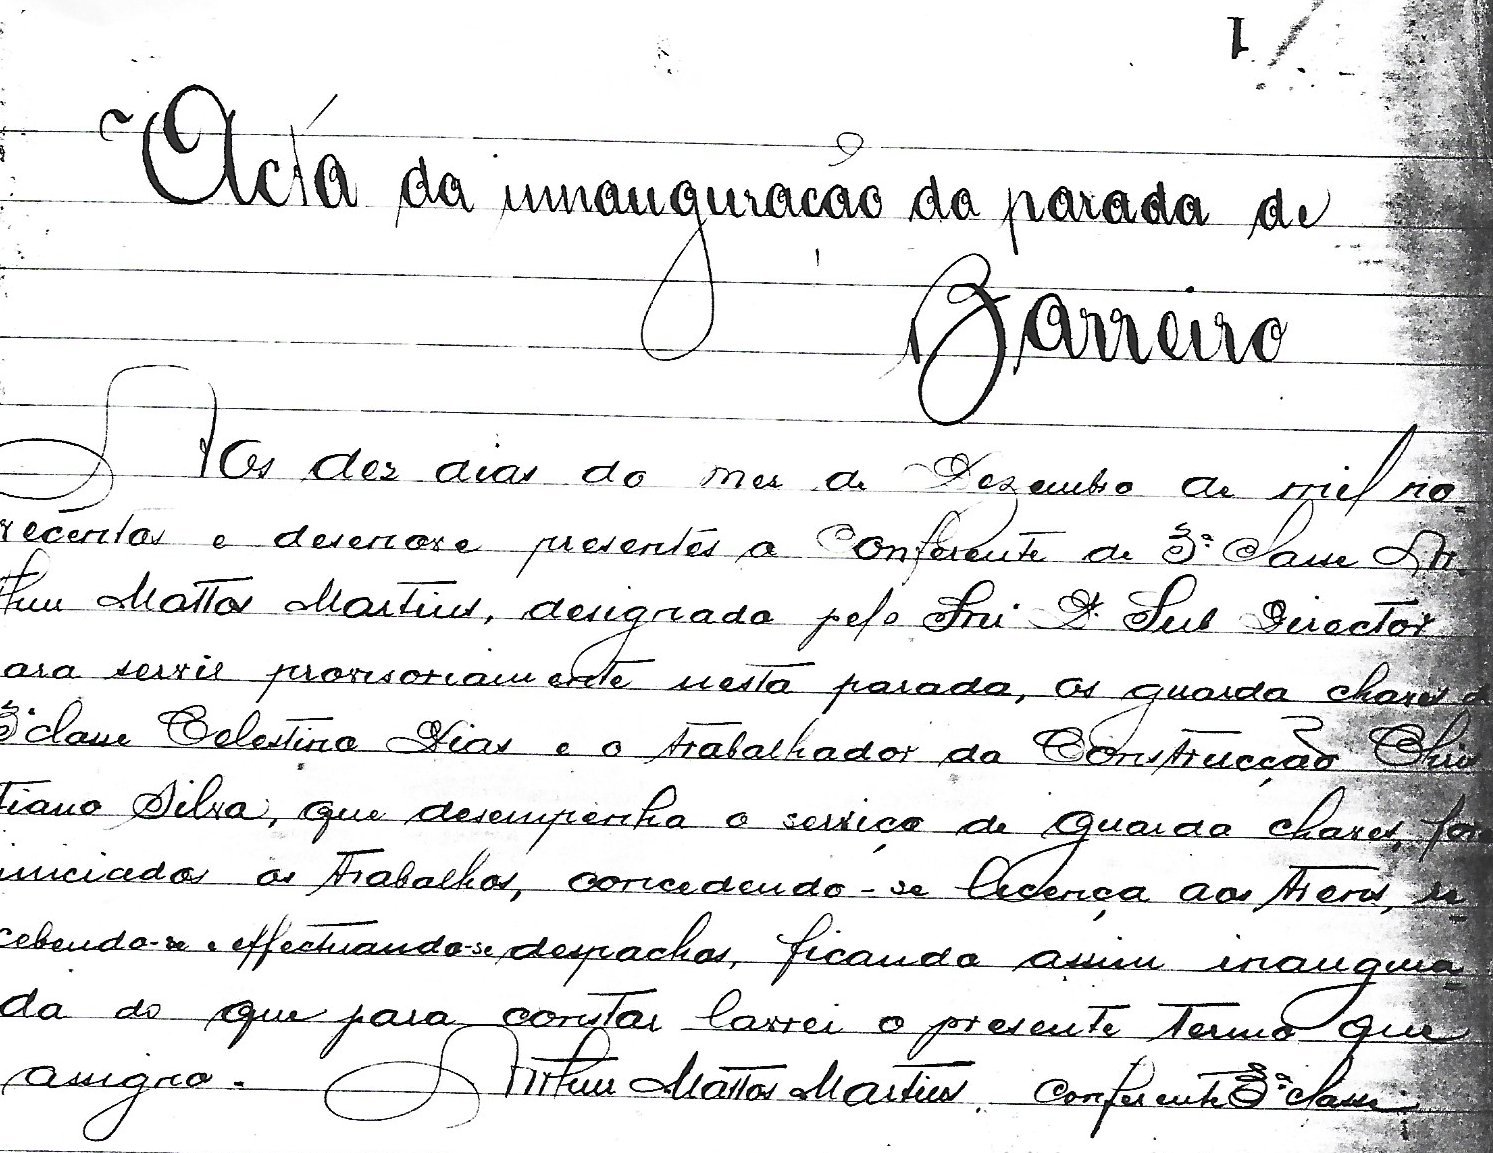 1
Acta da innauguração da parada de
Barreiro
Aos dez dias do mez de Dezembro de mil no-
vecentos e desenove presentes o Conferente de 3ª Classe Ar-
thur Mattos Martins, designado pelo Snr. Dr. Sub Director
para servir provisoriamente nesta parada, os guarda chaves de
3ª classe Celestino Dias e o trabalhador da Construcção Chris
tiano Silva, que desempenha o serviço de guarda chaves, foram
iniciados os trabalhos, concedendo-se licença aos trens, re-
cebendo-se e effectuando-se despachos, ficando assim inaugura-
da do que para constar lavrei o presente termo que
assigno. Arthur Mattos Martins. conferente 3ª classe